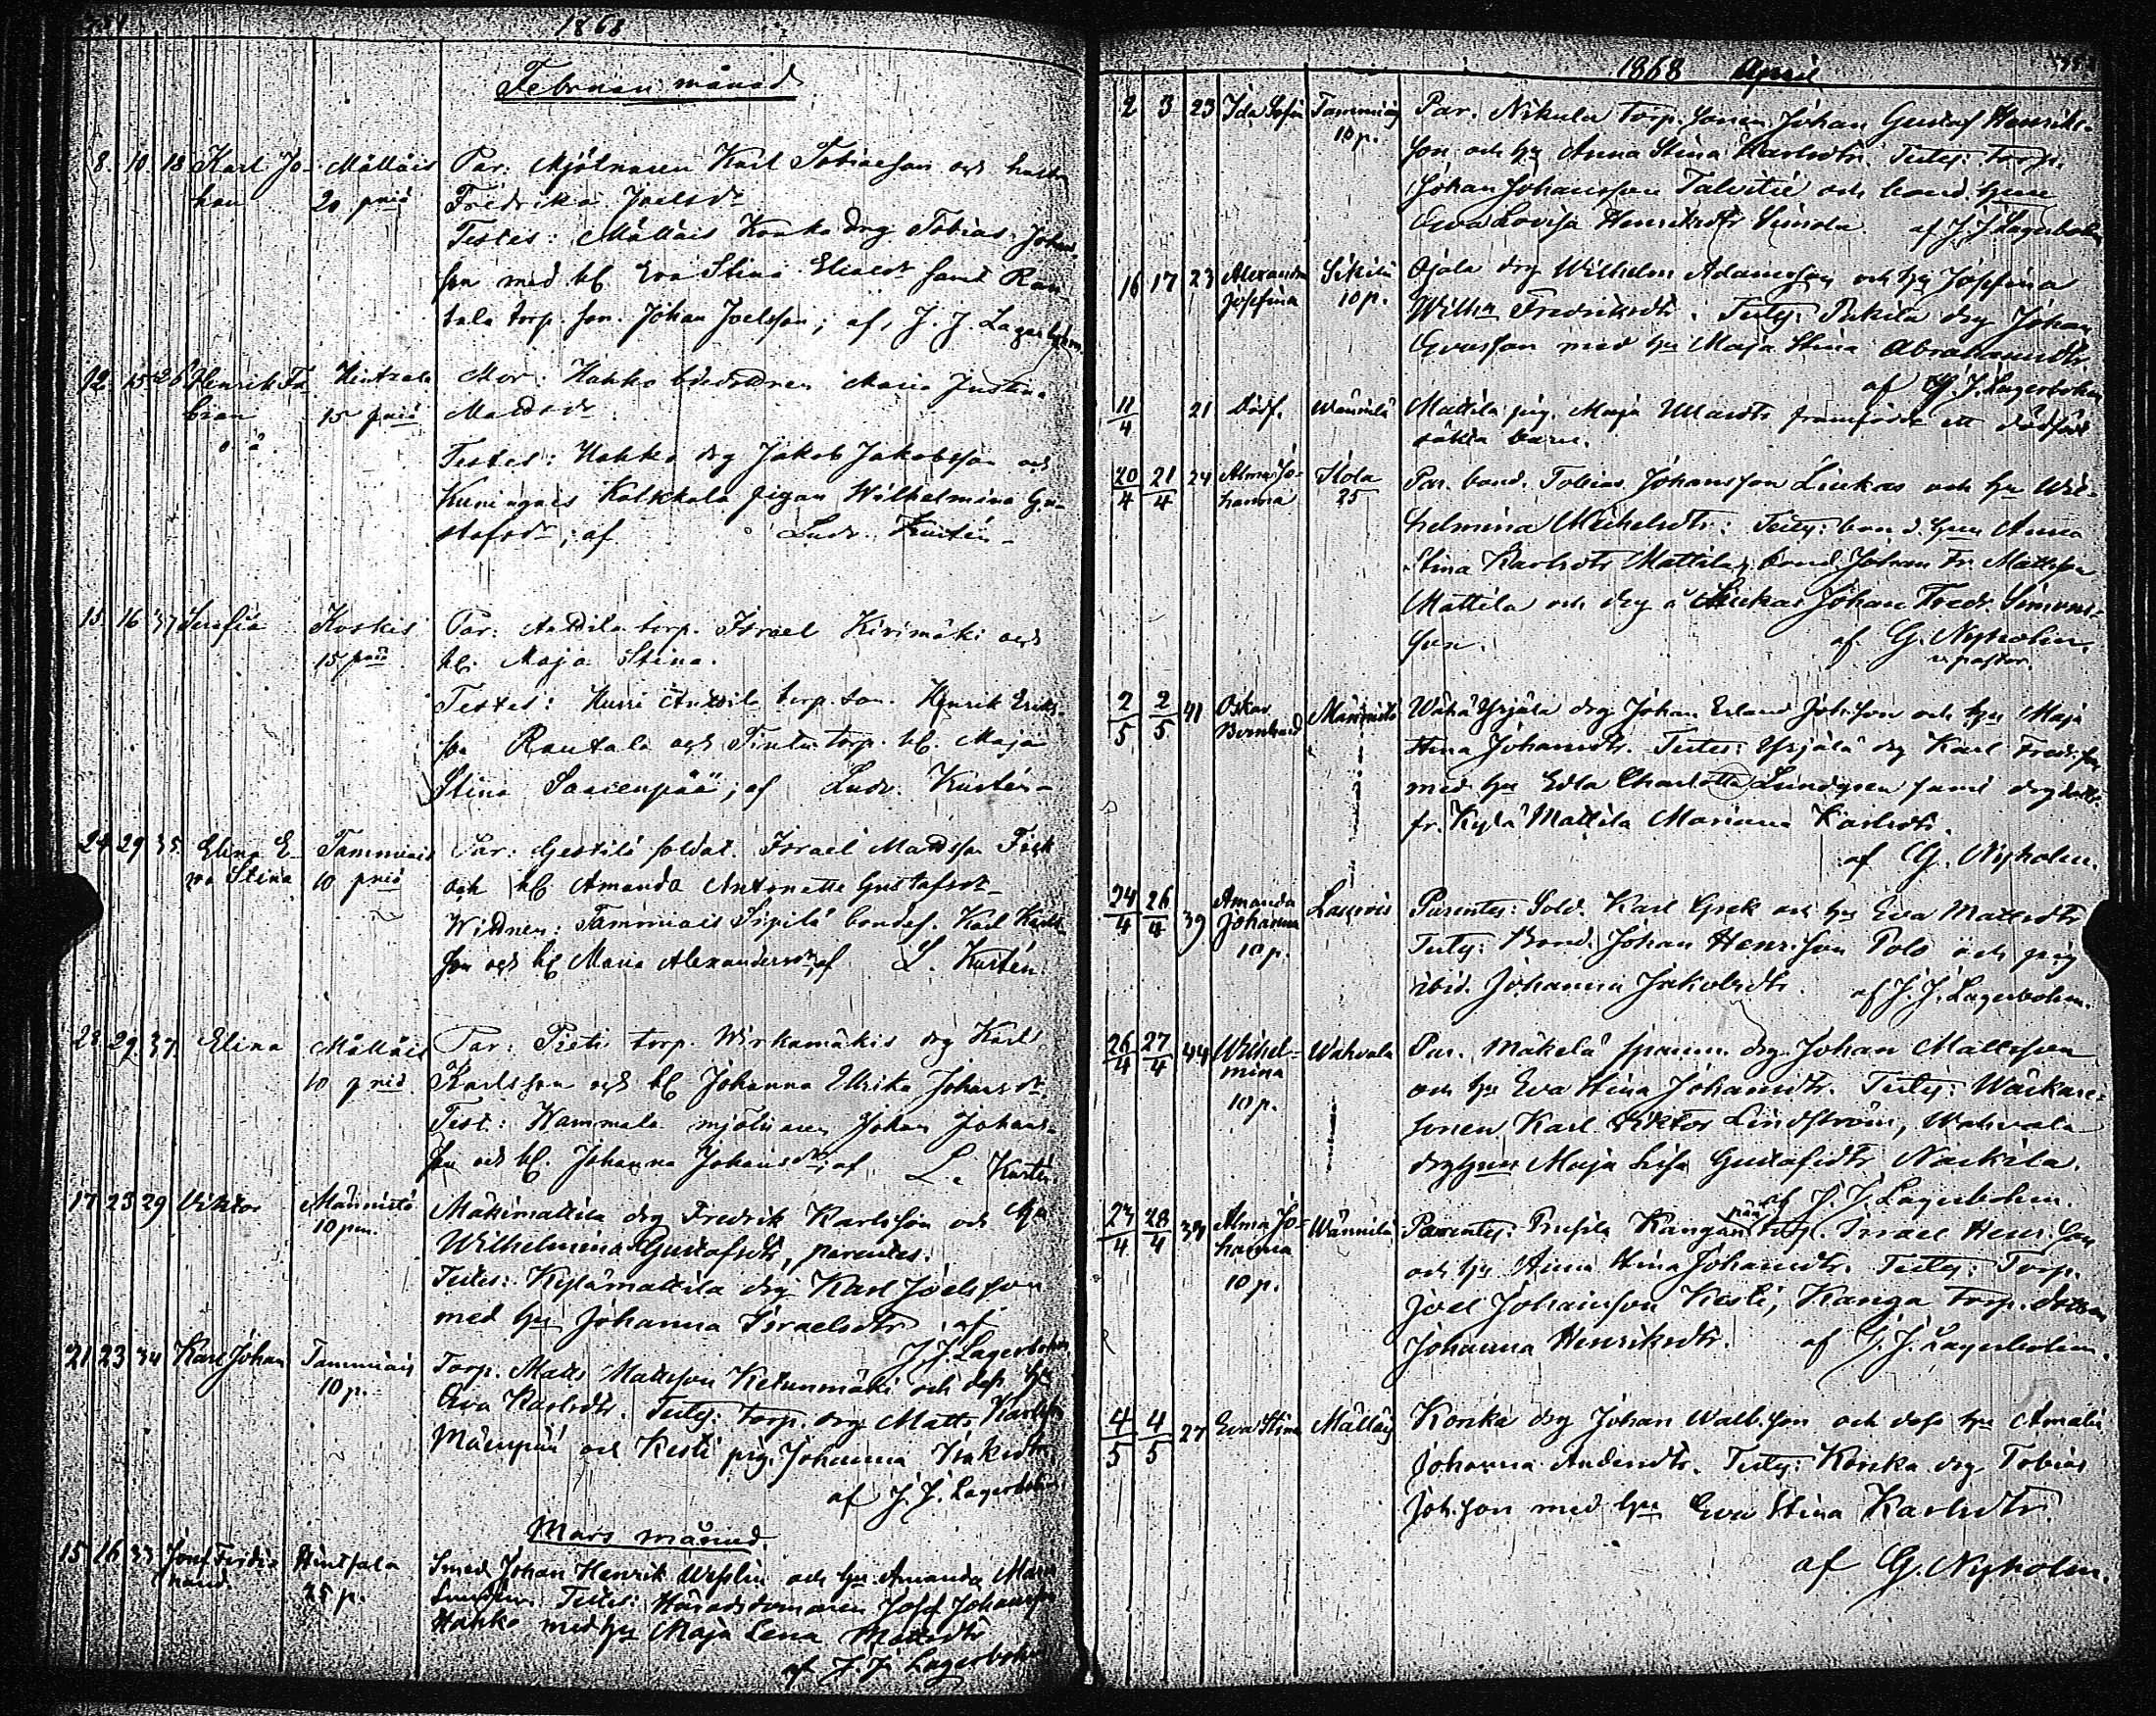 1868
Februari månad
8. 10. 18 Karl Jo- Mälläis Par: Mjölnaren Karl Tobiasson och hustru
han 20 pnä Fredrika Joelsdr
Testes: Mälläis Konka drg Tobias Johans-
son med hl Eva Stina Eliaedr samt Rau-
tala torp. son. Johan Joelsson; af, J. J. Lagerbohm.
12. 15. 26 Henrik Fa- Hintsala Mor: Hakko Maria Justina
bian 15 pnä Mattsdr
o ä
Testes: Hakko drg Jakob Jakobsson och
Kuningais Kolkkala pigan Wilhelmina Gu-
stafsdr; af Ludv. Kurtén
15 16 37 Serafia Koskis Par: Anttila torp. Israel Kivimäki och
15 pnä hl. Maja Stina.
Testes: Anttila torp. son. Henrik Eriks-
son Rautala och torp. hl. Maja
Stina Saarenpää; af Ludv. Kurtén
24 29 35 Elina E- Tammiais Par: soldat. Israel Mattsson Fisk
va Stina 10 pnä och hl Amanda Antonette Gustafsdr
Wittnen: Tammiais Sipilä bondes. Karl Karls-
son och hl Maria Alexandersdr, af L. Kurtén.
28. 29. 37. Elina Mälläis Par: torp. Wirkamäkis drg Karl
10 pnä Karlsson och hl Johanna Ulrika Johansdr
Test.: Hammala mjölnaren Johan Johans-
son och hl. Johanna Johansdr, af L. Kurtén
17 23 29 Viktor Männistö Mäkimattila drg Fredrik Karlsson och hu
10 pm. Wilhelmina Gustafsdtr, parentes.
Testes: Kylämattila drg Karl Joelsson
med hu Johanna Israelsdtr af
J. J. Lagerbohm.
21 23 34 Karl Johan Tammiais Torp. Matts Mattsson Ketunmäki och dess hu
10 p. Eva Karlsdtr. Testes: torp. drg Matts Karlsson
Mäenpää och Kesti pig. Johanna Isaksdtr
af J. J. Lagerbohm
Mars månad.
15 16 33 Josef Ferdi- Hintsala Smed Johan Henrik Wesslin och hu Amanda Maria
nand 25 p. Testes: Häradsdomaren Josef Johansson
Hakko med hu Maja Lena Mattsdtr
af J. J. Lagerbohm
1868 April
2 3 23 Ida Sofia Tammiais Par. Nikula torp. sonen Johan Gustaf Henriks-
10 p. son och hu Anna Stina Karlsdtr. Testes: torp.
Johan Johansson Talvitie och bond. hun
Eva Lovisa Henriksdtr Simola af J. J. Lagerbohm
16 17 23 Alexandra Sikilä Ojala drg Wilhelm Adamsson och hu Josefina
Josefina 10 p. Wilhna Fredriksdtr. Testes: Pukila drg Johan
Evasson med hu Maja Stina Abrahamsdtr.
af J. J. Lagerbohm
11/4 21 Dödf. Wännilä Mattila pig. Maja framfödde ett dödfödt
oäkta barn.
20/4 21/4 24 Alma Jo- Ilola Par. bond. Tobias Johansson Liukas och hu Wil-
hanna 25 helmina Michelsdtr: Testes: bond. hun Anna
Stina Karlsdtr Mattila, bond. Johan Fr. Mattsson
Mattila och drg å Liukas Johan Fredr. Simons-
son. af G. Nyholm.
v. pastor.
2/5 2/5 41 Oskar Männistö Wähä Yrjälä drg Johan Erland Johsson och hu Maja
Bernhard Stina Johansdtr. Testes: Yrjälä drg Karl Fredr.son
med hu Edla Charlotta Lundgren samt
fr. Kylä Mattila Mariana Karlsdtr.
af G. Nyholm.
24/4 26/4 39 Amanda Lausvis Parentes: Sold. Karl Grek och hu Eva Mattsdtr
Johanna Testes: Bond. Johan Henr.sson Polo och pig
10 p. ibid. Johanna Jakobsdtr. af J. J. Lagerbohm.
26/4 27/4 44 Wilhel- Wahvala Par. Mäkelä spanm. drg. Johan Mattsson
mina och hu Eva Stina Johansdtr. Testes: Wäckare-
10 p. sonen Karl Viktor Lindström, Wahvala
drg hun Maja Lisa Gustafsdtr Naskila.
af J. J. Lagerbohm.
27/4 28/4 39 Alma Jo- Wännilä Parentes: Kanganpää torp. Israel Henr. son
hanna och hu Anna Stina Johansdtr. Testes: Torp.
10 p. Joel Johansson Kesti, Kanga torp. dottren
Johanna Henriksdtr. af J. J. Lagerbohm.
4/5 4/5 27 Eva Stina Mälläis Konka drg Johan Walb.son och dess hu Amalia
Johanna Andersdtr. Testes: Konka drg Tobias
Joh.son med hu Eva Stina Karlsdtr.
af G. Nyholm.